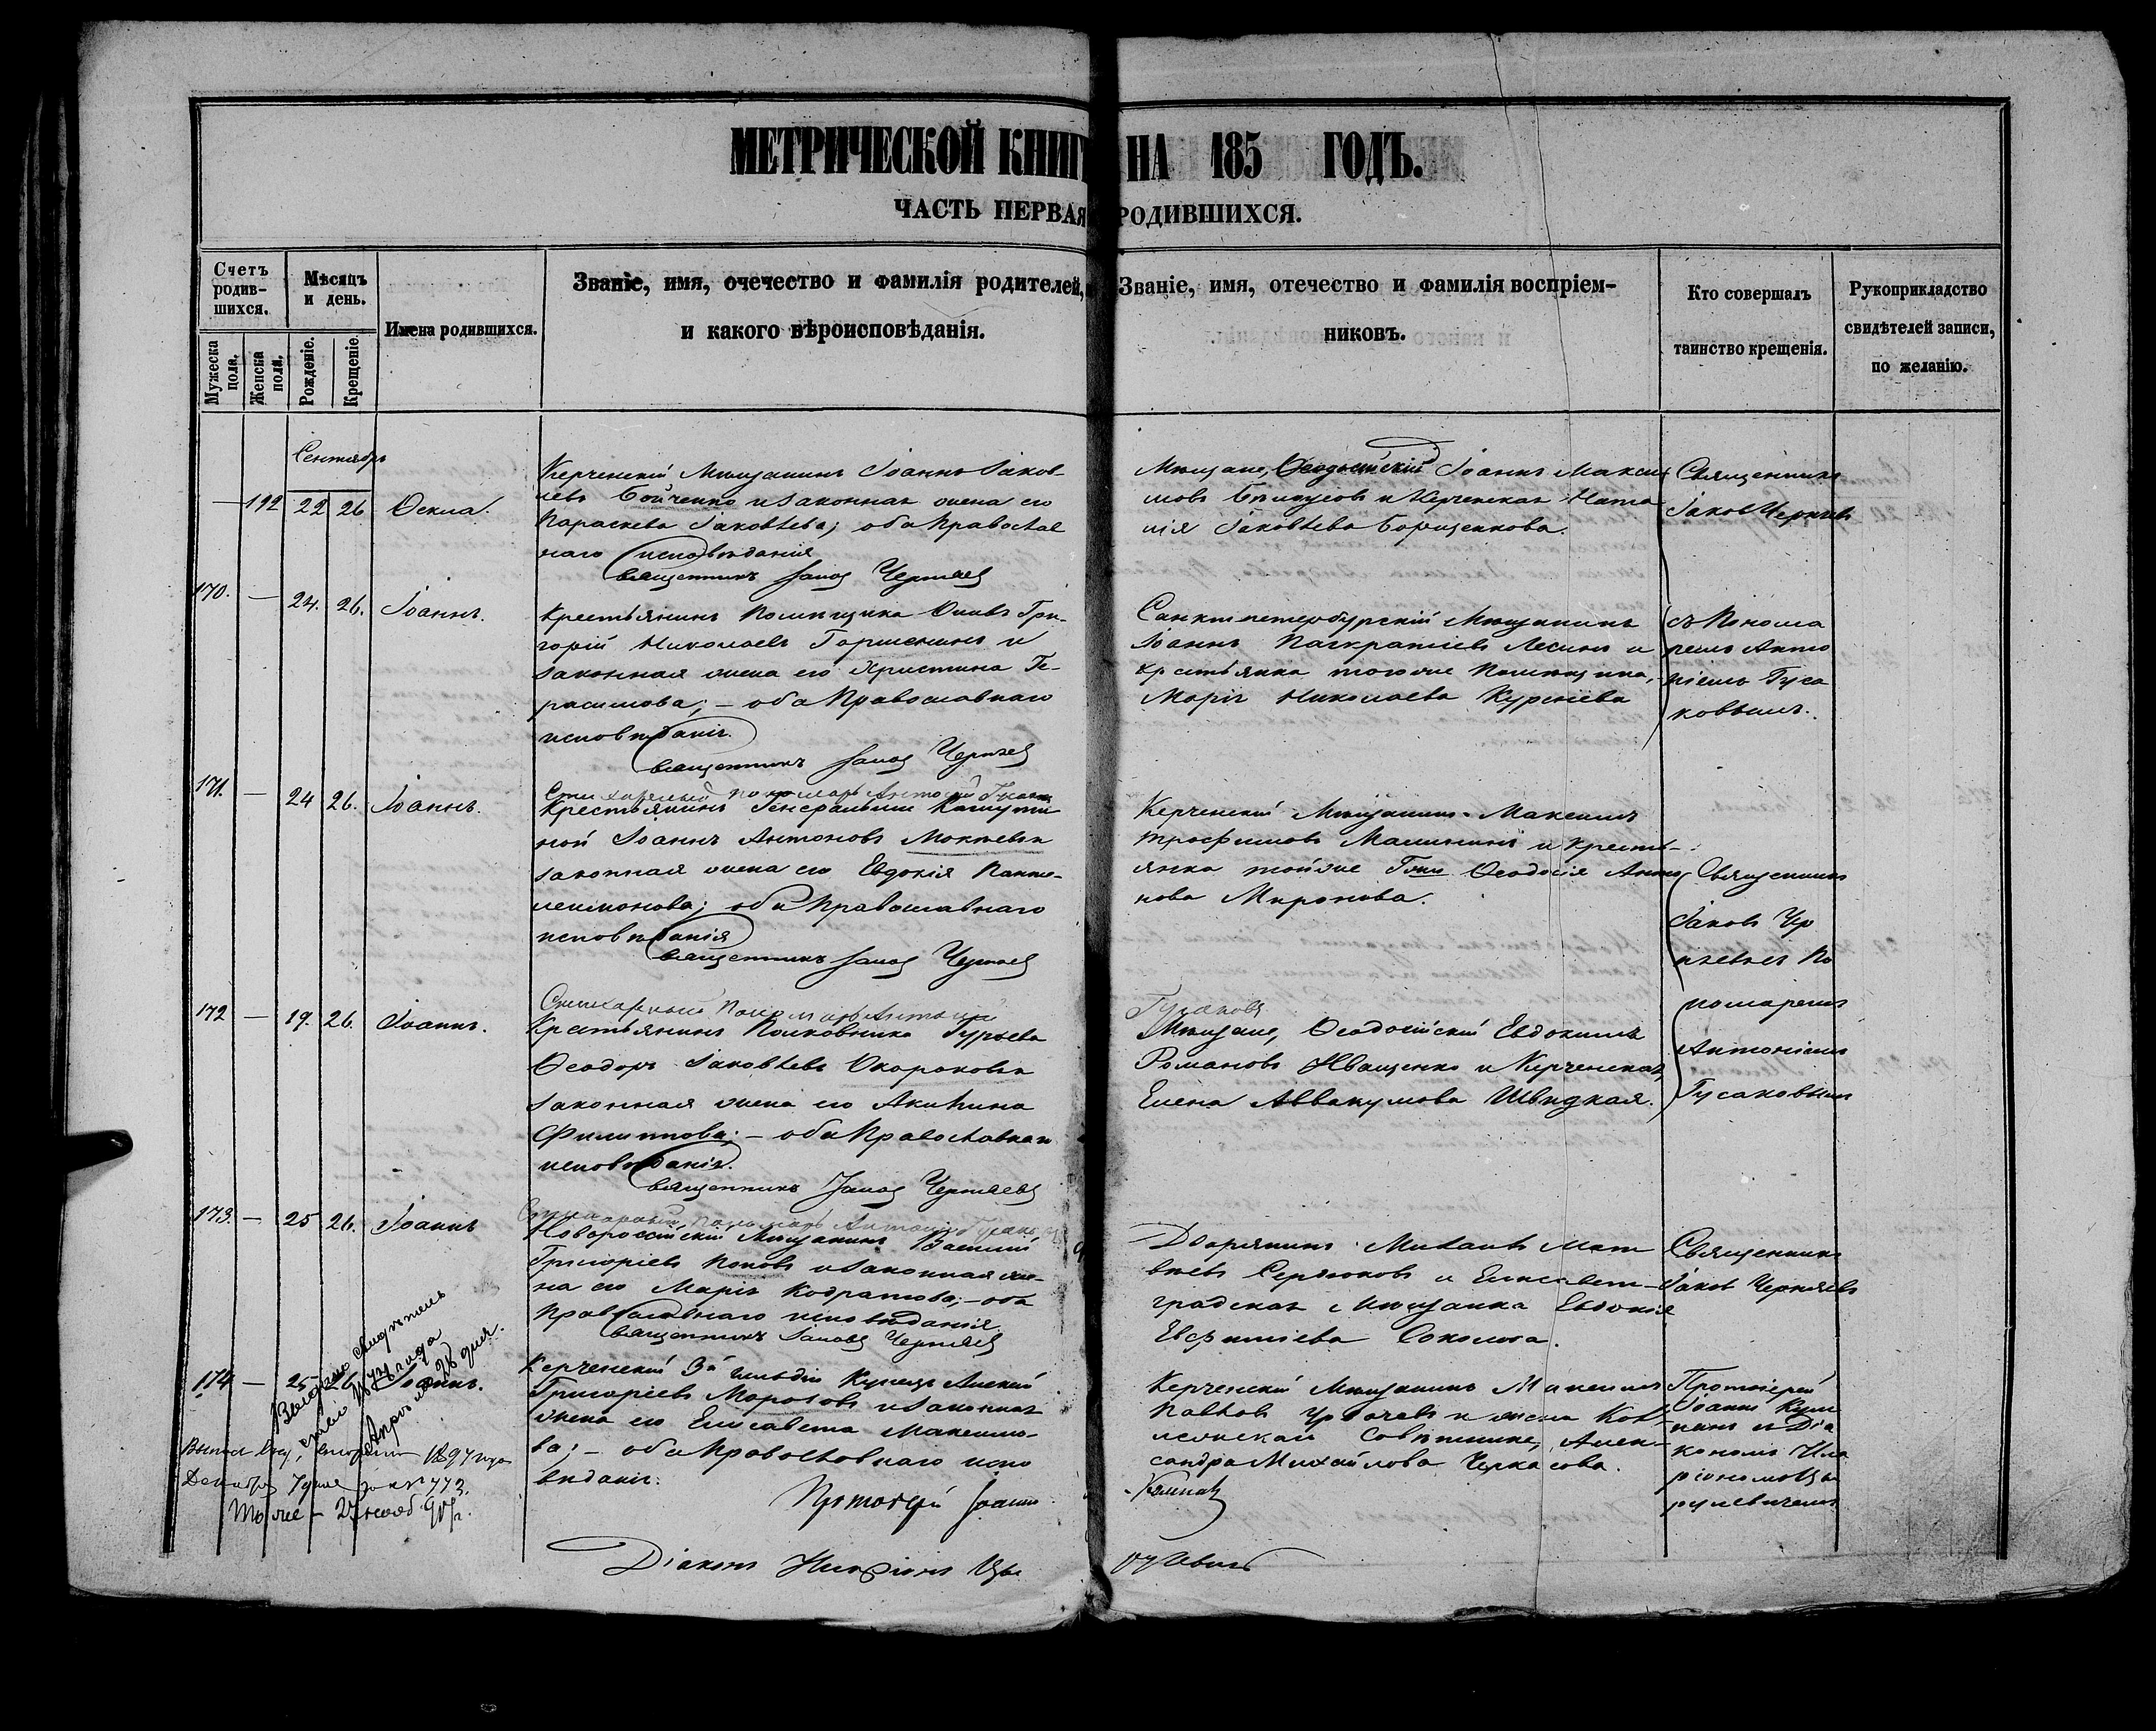 МЕТРИЧЕСКОЙ КНИГ НА 185 ГОДЪ.
ЧАСТЬ ПЕРВАЯ РОДИВШИХСЯ.
Счетъ родив-шихся.
Мѣсяцъ и день.
Имена родившихся.
Званіе, имя, очечество и фамилія родителей,
и какого вѣроисповѣданія.
Званіе, имя, отечество и фамилія воспріем-
никовъ.
Кто совершалъ
таинство крещенія.
Рукоприкладство
свидѣтелей записи,
по желанію.
Мужеска пола.
Женска пола.
Рожденіе.
Крещеніе.
Сентябрь
— 192 22 26 Ѳекла.
Керченскій Мѣщанинъ Іоаннъ Іаков-
левъ Бойченко и законная жена его
Параскева Іаковлева; оба Православ
наго исповѣданія
Священникъ Іаковъ Черняев
Мѣщане, Ѳеодосійскій Іоаннъ Макси
мовъ и Керченская Ната
лія Іаковлева Борищенкова.
Священникъ
Іаковъ Черняевъ
170. — 24. 26. Іоаннъ.
Крестьянинъ Помѣщика Гри-
горій Николаевъ Горшенинъ и
законная жена его Христина Ге-
расимова; — оба Православнаго
исповѣданія.
Священникъ Іаковъ Черняев
Санктпетербурскій Мѣщанинъ
Іоаннъ Панкратіевъ Лесинъ и
крестьянка тогоже Помѣщика,
Марія Николаева
съ Понома
ремъ Анто
ніемъ Гуса
ковымъ.
171. — 24 26. Іоаннъ.
Стихарный пономарь Антоній Гусаков
Крестьянинъ Генеральши
ной Іоаннъ Антоновъ
законная жена его Евдокія Панте-
леимонова; оба Православнаго
исповѣданія
Священникъ Іаковъ Черняев
Керченскій Мѣщанинъ Максимъ
Трофимовъ Машинъ и кресть-
янка тойже Гжи Ѳеодосія Анто
нова Миронова.
Священникъ
Іаковъ Чер
няевъ съ По
номаремъ
Антоніемъ
Гусаковымъ
172 — 19. 26. Іоаннъ.
Стихарный Пономарь Антоній Гусаковъ
Крестьянинъ Полковника Гурьева
Ѳеодоръ Іаковлевъ
законная жена его Акилина
Филиппова; — оба Православнаго
исповѣданія.
Священникъ Іаковъ Черняевъ
Мѣщане, Ѳеодосійскій Евдокимъ
Романовъ Иващенко и Керченская,
Елена Аввакумова Швидкая.
173. — 25 26. Іоаннъ
Стихарный пономарь Антоній Гусаков
Новороссійскій Мѣщанинъ Василій
Григоріевъ Поповъ и законная же-
на его Марія Кодратова; — оба
Православнаго исповѣданія.
Священникъ Іаковъ Черняев
Дворянинъ Михаилъ Мат
вѣевъ Сердюковъ и Елисавет-
градская Мѣщанка Евдокія
Евфиміева Соколова.
Священникъ
Іаковъ Черняевъ
174 — 25 26 Іоаннъ.
Керченскій 3й гильдіи Купецъ Алексѣй
Григоріевъ Морозовъ и законная
жена его Елисавета Максимо-
ва; — оба Православнаго испо
вѣданія.
Протоіерей Іоаннъ
Діаконъ Иларіонъ
Керченскій Мѣщанинъ Максимъ
Павловъ и жена Кол-
лежскаго Совѣтника, Алек-
сандра Михайлова Черкасова.
Протоіерей
Іоаннъ
и Діа
кономъ Ила
ріономъ Цы
рулевичемъ
Апрѣля 28 дня.
1897 года
Декабря 7 дня за № 773.
Тоже —